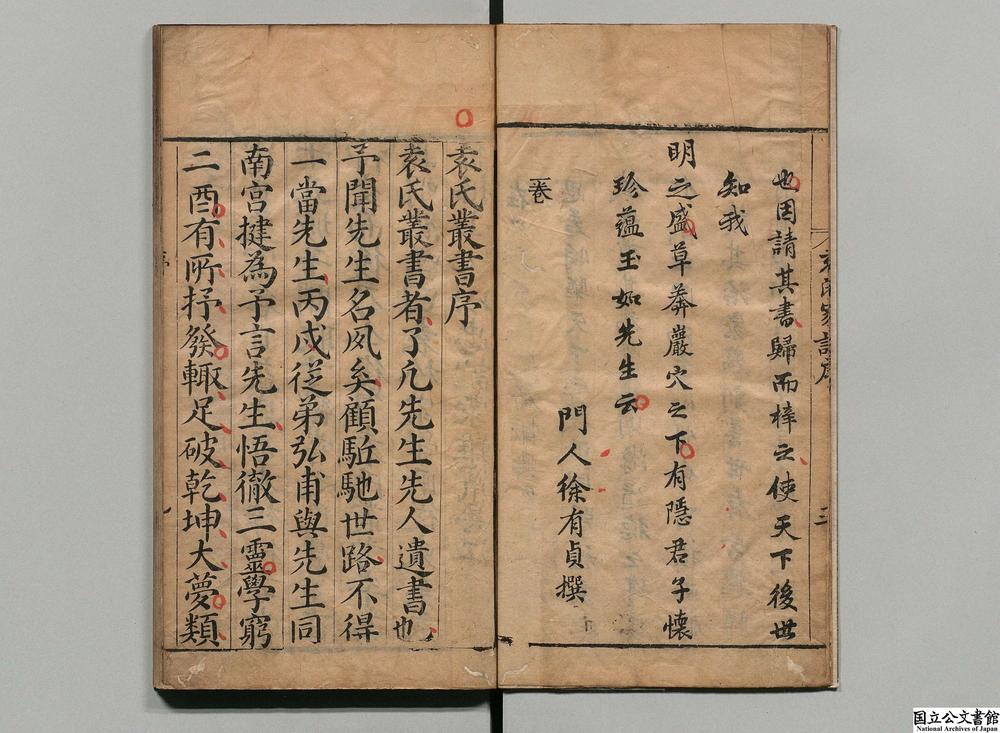 也因請其書歸而梓之使天下後世
知我
明之盛草莽巖穴之下有隱君子懷
珍蘊玉如先生云
門人徐有貞撰
卷
三
袁氏叢書序
袁氏叢書者了凡先生先人遺書也
予聞先生名夙矣顧駈馳世路不得
一當先生丙戌從弟弘甫與先生同
南宮揵為予言先生悟徹三靈學窮
二酉有所抒發輙足破乾坤大夢類
序
国立公文書館
National Archives of Japan